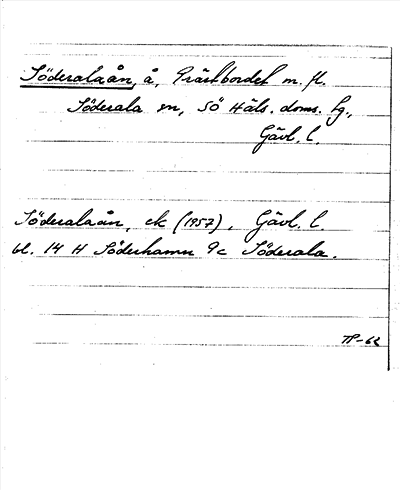 Söderalaån, å, Prästbordet m. fl.
Söderala sn, Sö Häls. doms. tg.,
Gävl. l.
Söderalaån, ek (1957), Gävl. l.
bl. 14 H Söderhamn 9c Söderala.
TP-62